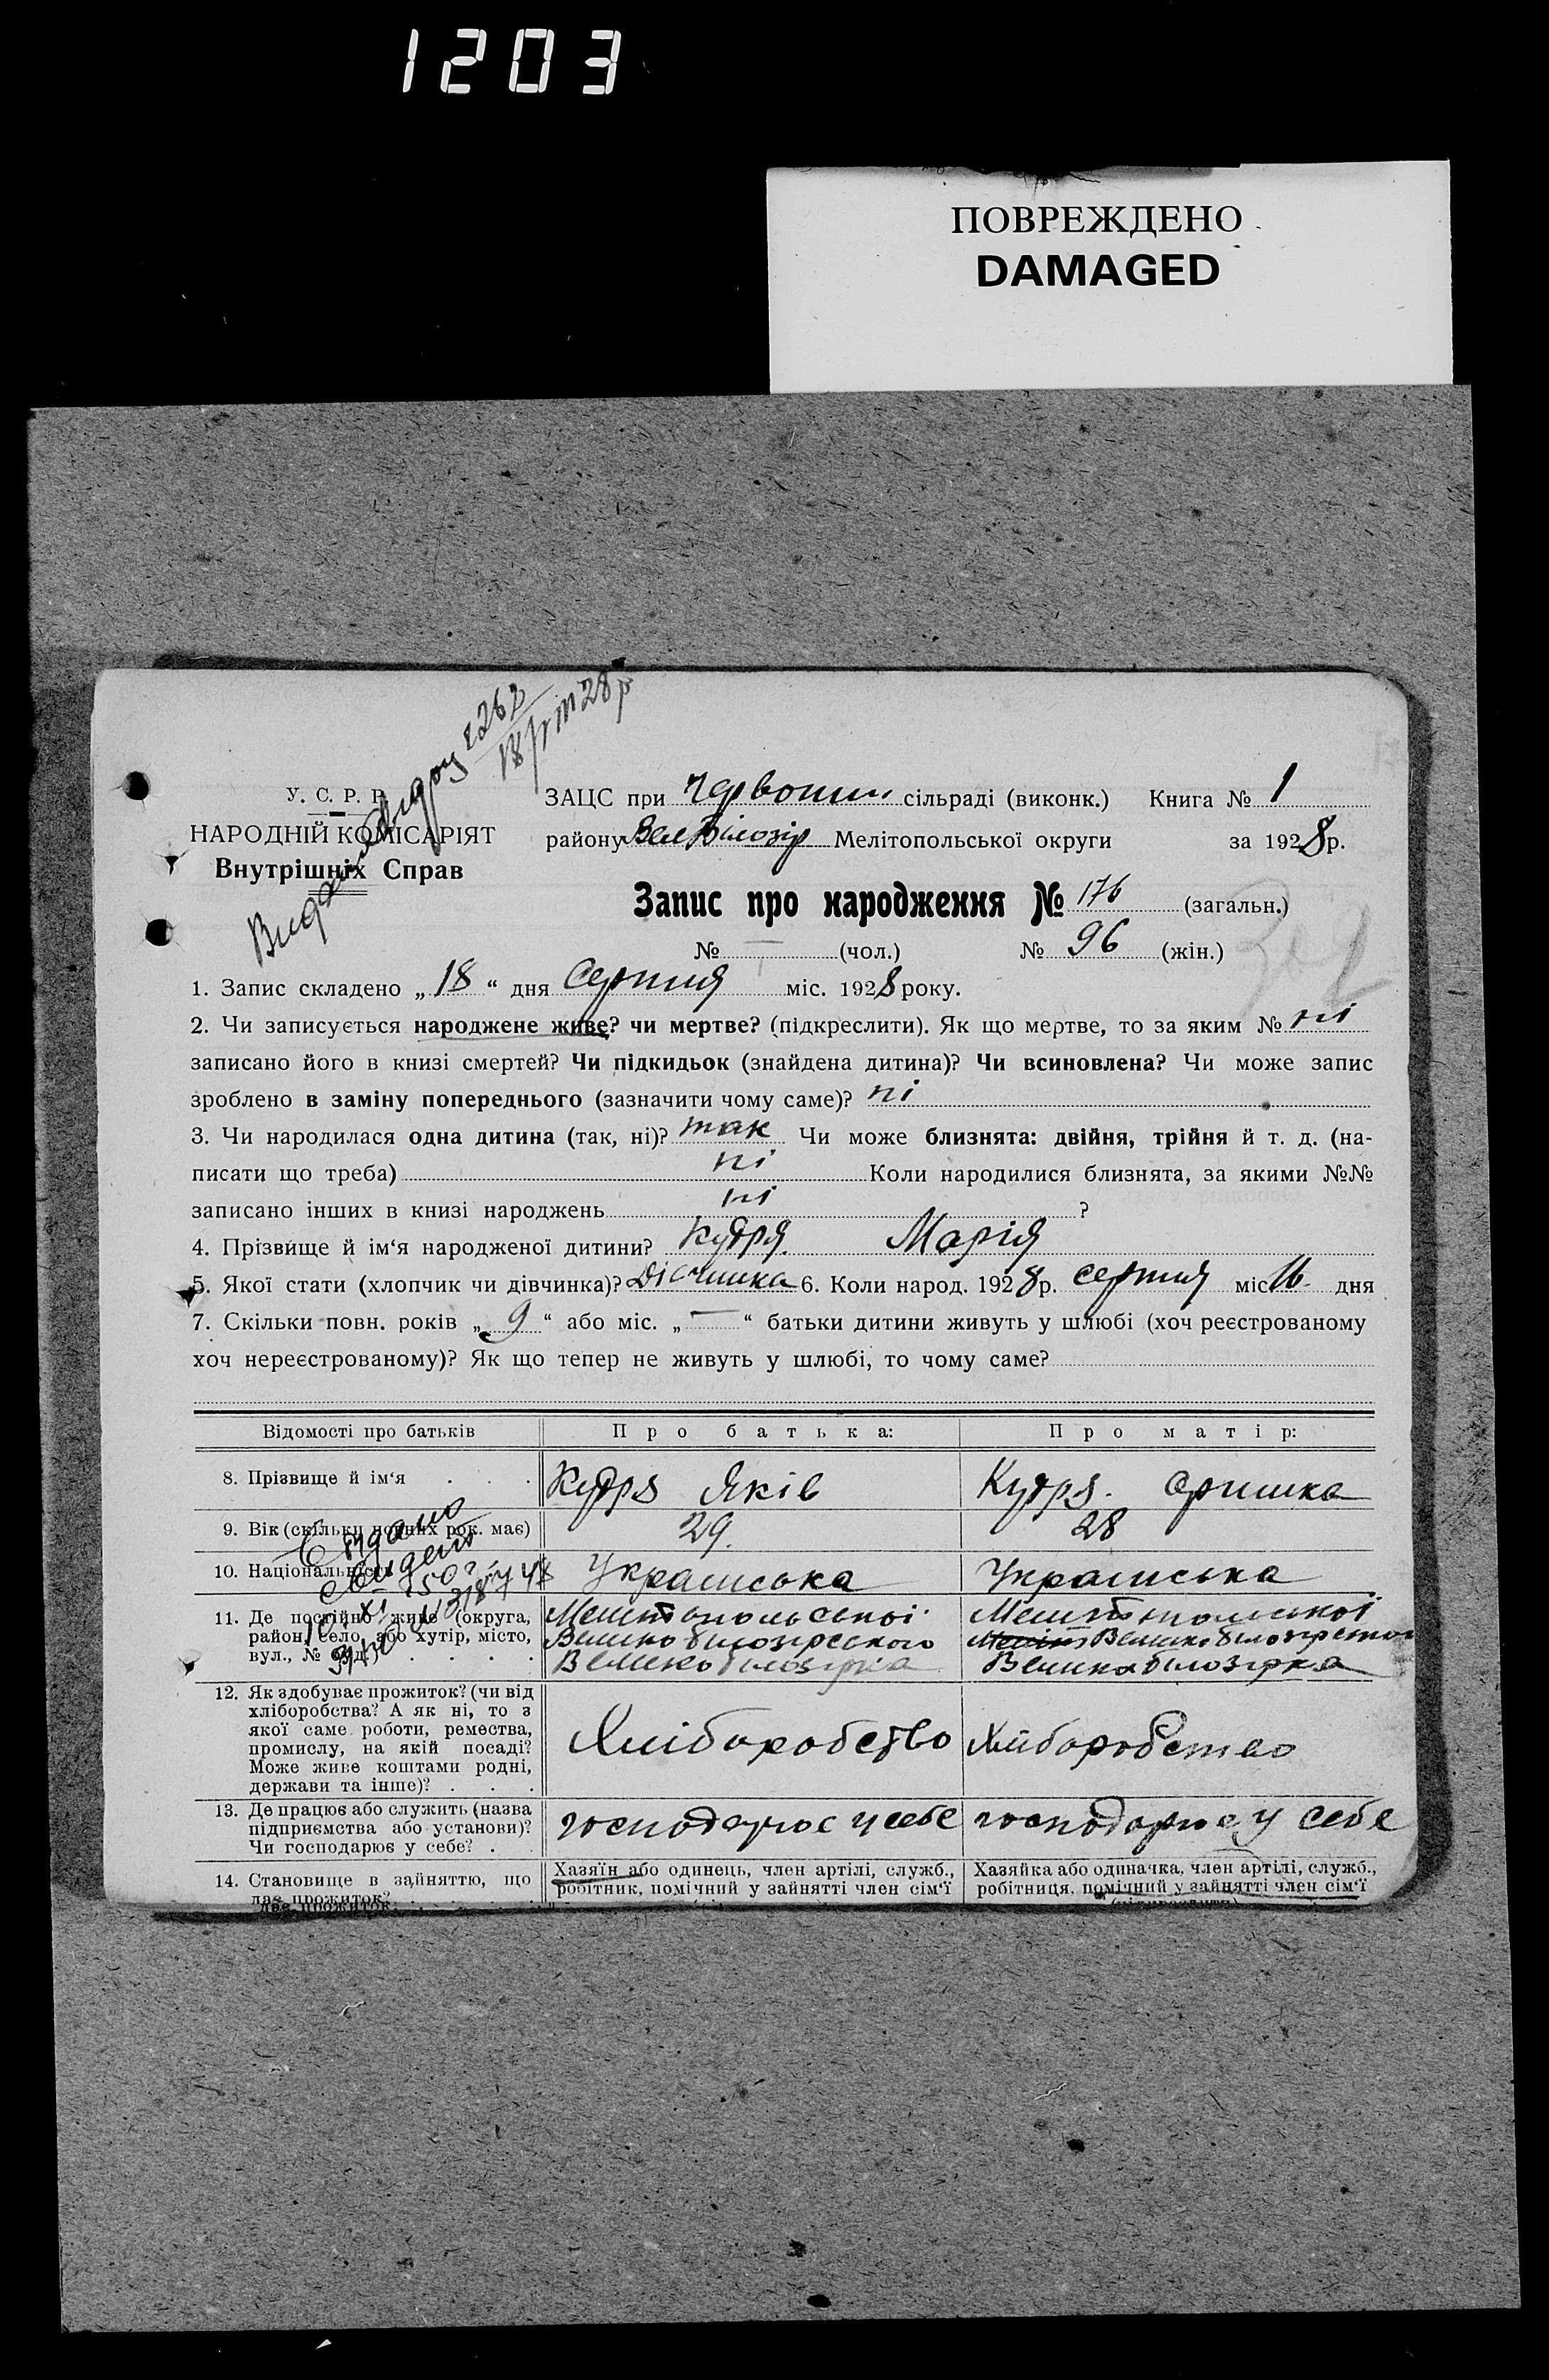 1203
ПОВРЕЖДЕНО
DAMAGED
У. С. Р. Р.
НАРОДНІЙ КОМІСАРІЯТ
Внутрішніх Справ
ЗАЦС при сільраді (виконк.) Книга № 1
району Вел Білозір Мелітопольської округи за 1928 р.
Запис про народження № 176 (загальн.)
№ — (чол.) № 96 (жін.)
1. Запис складено „18“ дня Серпня міс. 1928 року.
2. Чи записується народжене живе? чи мертве? (підкреслити). Як що мертве, то за яким № ні
записано його в книзі смертей? Чи підкидьок (знайдена дитина)? Чи всиновлена? Чи може запис
зроблено в заміну попереднього (зазначити чому саме)? ні
3. Чи народилася одна дитина (так, ні)? так Чи може близнята: двійня, трійня й т. д. (на-
писати що треба) ні Коли народилися близнята, за якими №№
записано інших в книзі народжень ні ?
4. Прізвище й ім‘я народженої дитини? Кудря Марія
5. Якої стати (хлопчик чи дівчинка)? Дівчинка 6. Коли народ. 1928 р. серпня міс 16 дня
7. Скільки повн. років „9“ або міс. „—“ батьки дитини живуть у шлюбі (хоч реєстрованому
хоч нереєстрованому)? Як що тепер не живуть у шлюбі, то чому саме?
Відомості про батьків Про батька: Про матір:
8. Прізвище й ім‘я . . . Кудря Яків Кудря Оришка
9. Вік (скільки повних рок. має) 29. 28
10. Національність Українська Українська
11. Де постійно живе (округа,
район, село, або хутір, місто,
вул., № буд.) . . . .
Мелітопольської
Великобілозірського
Великобілозірка
Мелітопольської
Великобілозірка
12. Як здобуває прожиток? (чи від
хліборобства? А як ні, то з
якої саме роботи, ремества,
промислу, на якій посаді?
Може живе коштами родні,
держави та інше)? . . .
Хліборобство Хліборобство
13. Де працює або служить (назва
підприємства або установи)?
Чи господарює у себе? . .
господарює у себе господарює у себе
14. Становище в зайняттю, що
дає прожиток? . . . . .
Хазяїн або одинець, член артілі, служб.,
робітник, помічний у зайнятті член сім‘ї
Хазяйка або одиначка, член артілі, служб.,
робітниця, помічний у зайнятті член сім‘ї